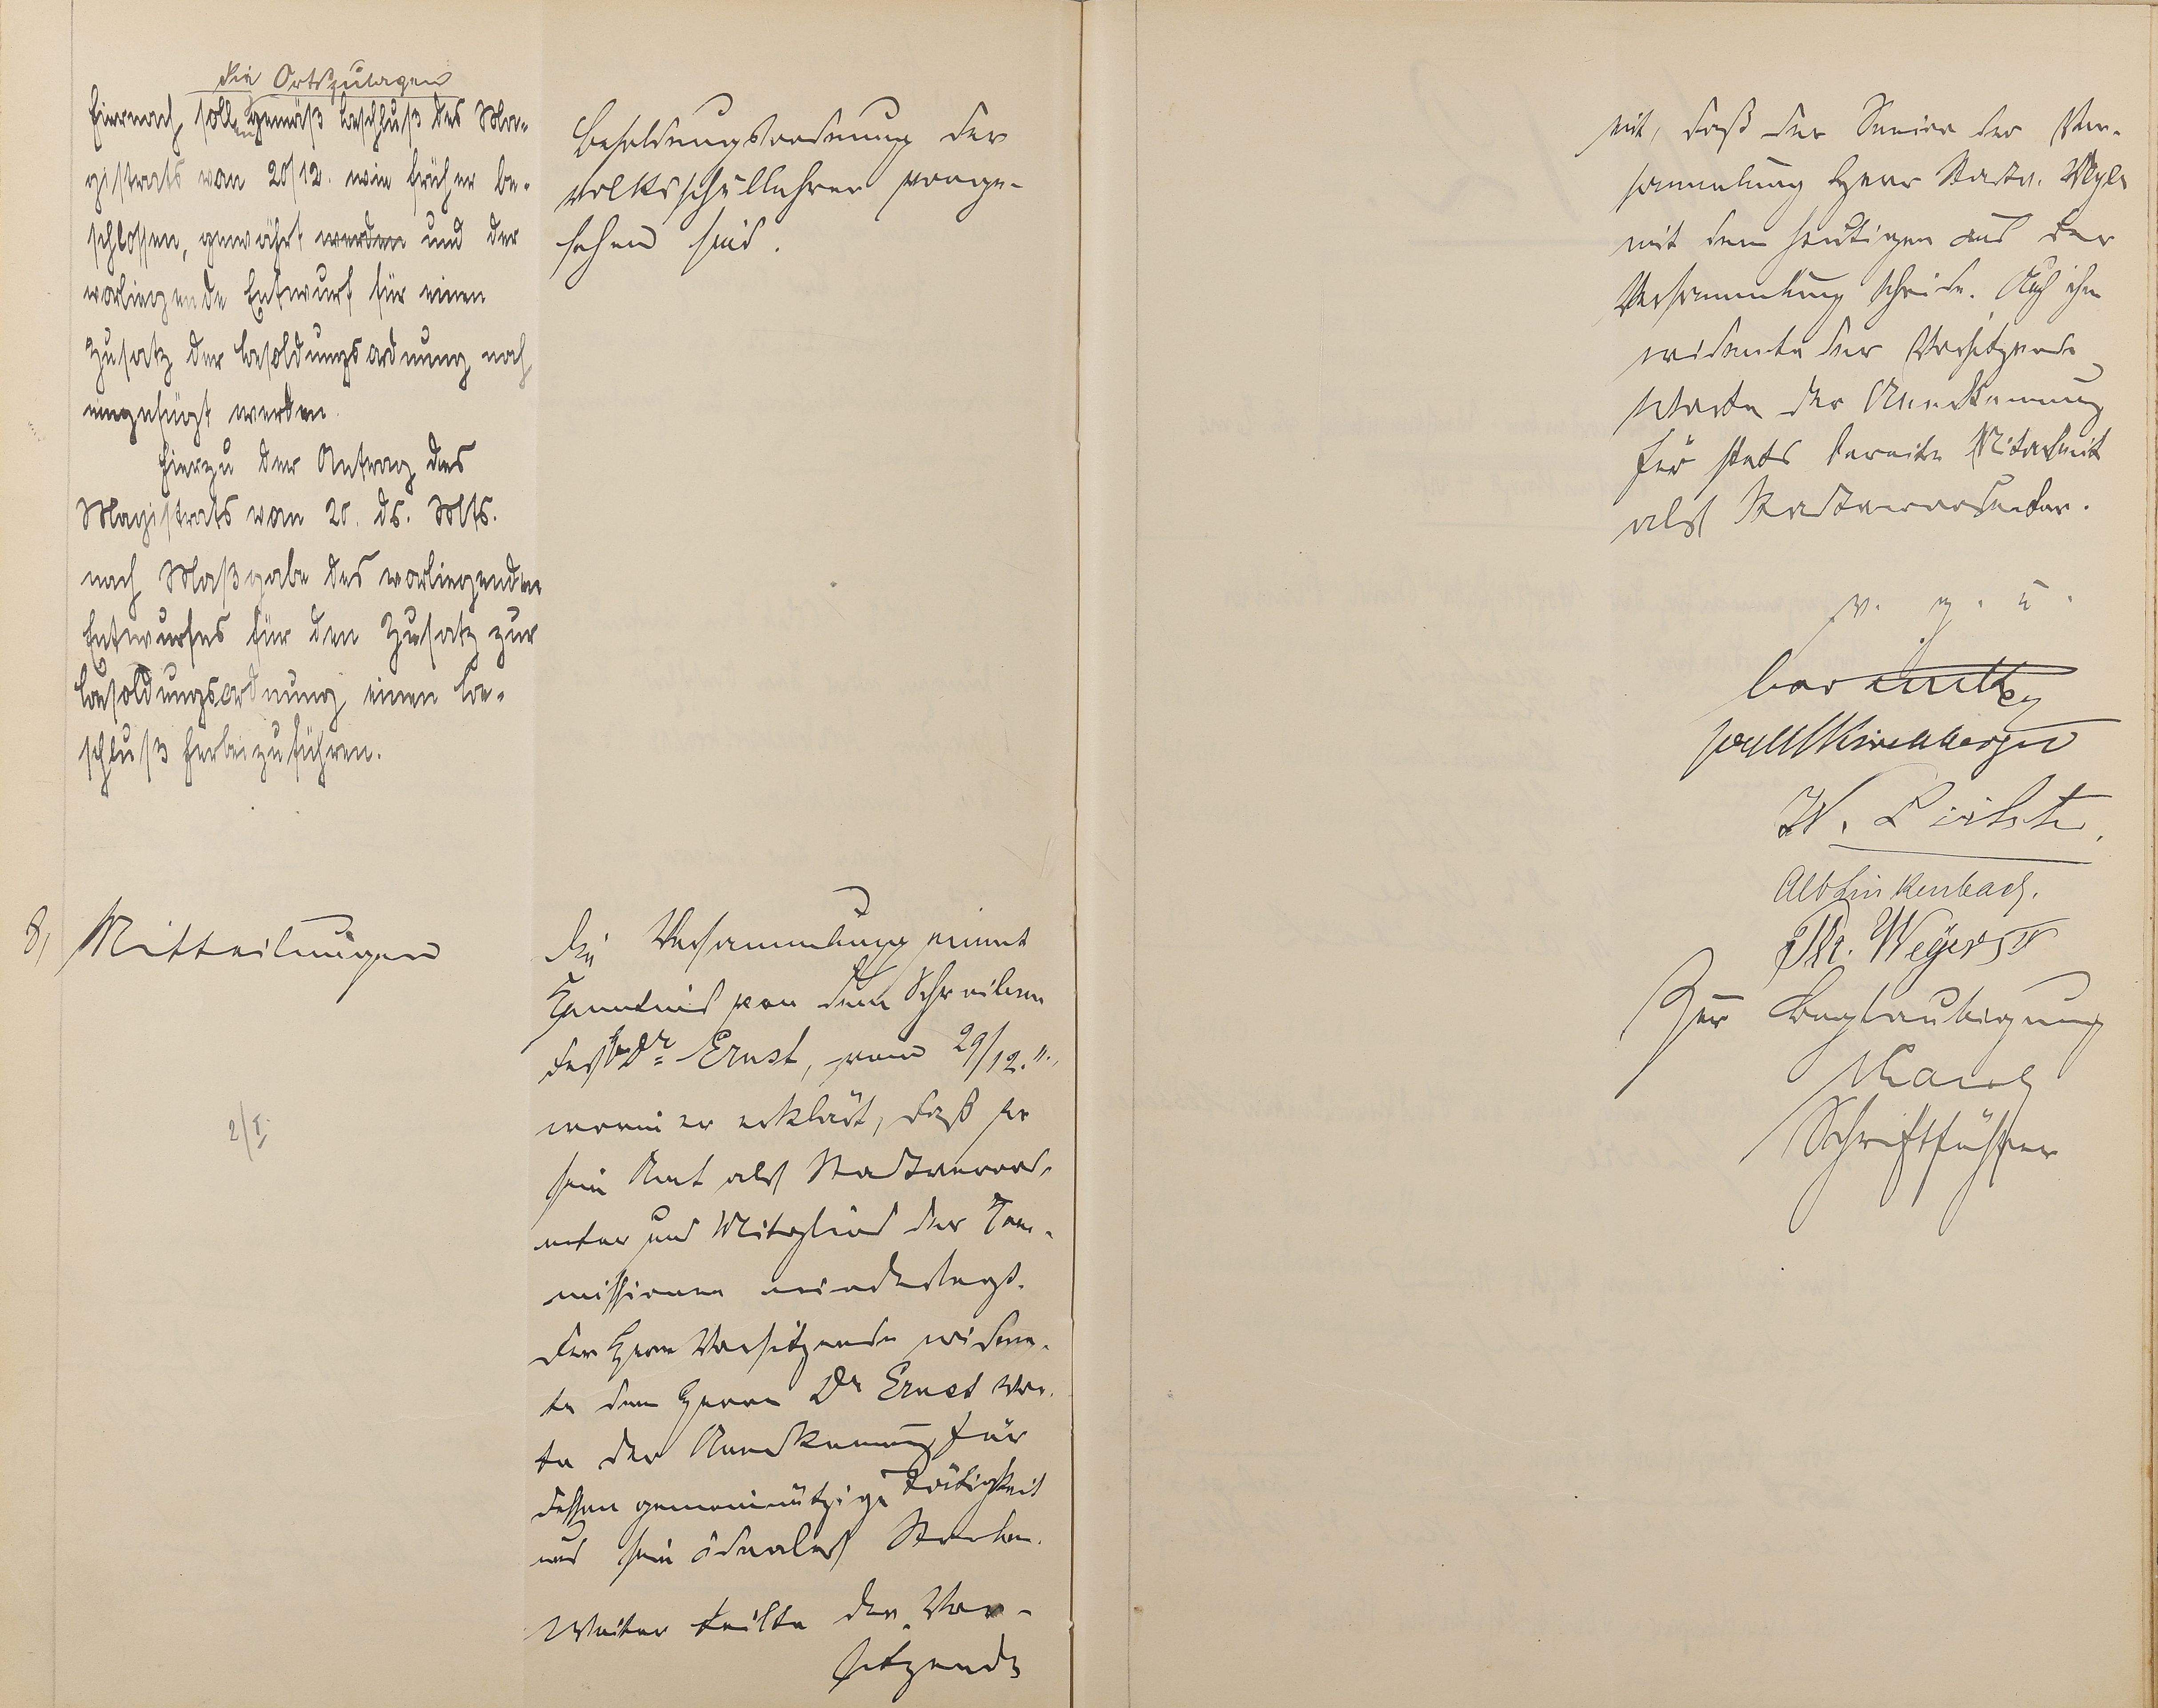 die Ortszulagen
Hiernach sollen gemäß Beschluß des Ma-
gistrats vom 20/12. wie früher be-
schlossen, gewährt werden und der
vorliegende Entwurf für einen
Zusatz der Besoldungsordnung noch
eingefügt werden.
Hierzu der Antrag des
Magistrats vom 20. ds. Mts.
nach Maßgabe des vorliegenden
Entwurfes für den Zusatz zur
Besoldungsordnung einen Be-
schluß herbeizuführen.
Besoldungsordnung der
Volksschullehrer vorge-
sehen sind.
8, Mitteilungen
2/I.
Die Versammlung nimmt
Kenntnis von dem Schreiben
des Dr Ernst, vom 29/12.
worin er erklärt, daß er
sein Amt als Stadtverord-
neter und Mitglied der Kom-
missionen niederlegt.
Der Herr Vorsitzende widme-
te dem Herrn Dr Ernst Wor-
te der Anerkennung für
dessen gemeinnützige Tätigkeit
und sein ideales Streben.
Weiter teilte der Vor-
sitzende
mit, daß der Senior der Ver-
sammlung Herr Stadtv.
mit dem heutigen aus der
Versammlung scheide. Auch ihm
widmete der Vorsitzende
Worte der Anerkennung
für stets bereite Mitarbeit
als Stadtverordneter.
v. g. u.
Kirchberger
W.
Alb Linkenbach.
Dr. Weyer
Zur Beglaubigung
Schriftführer